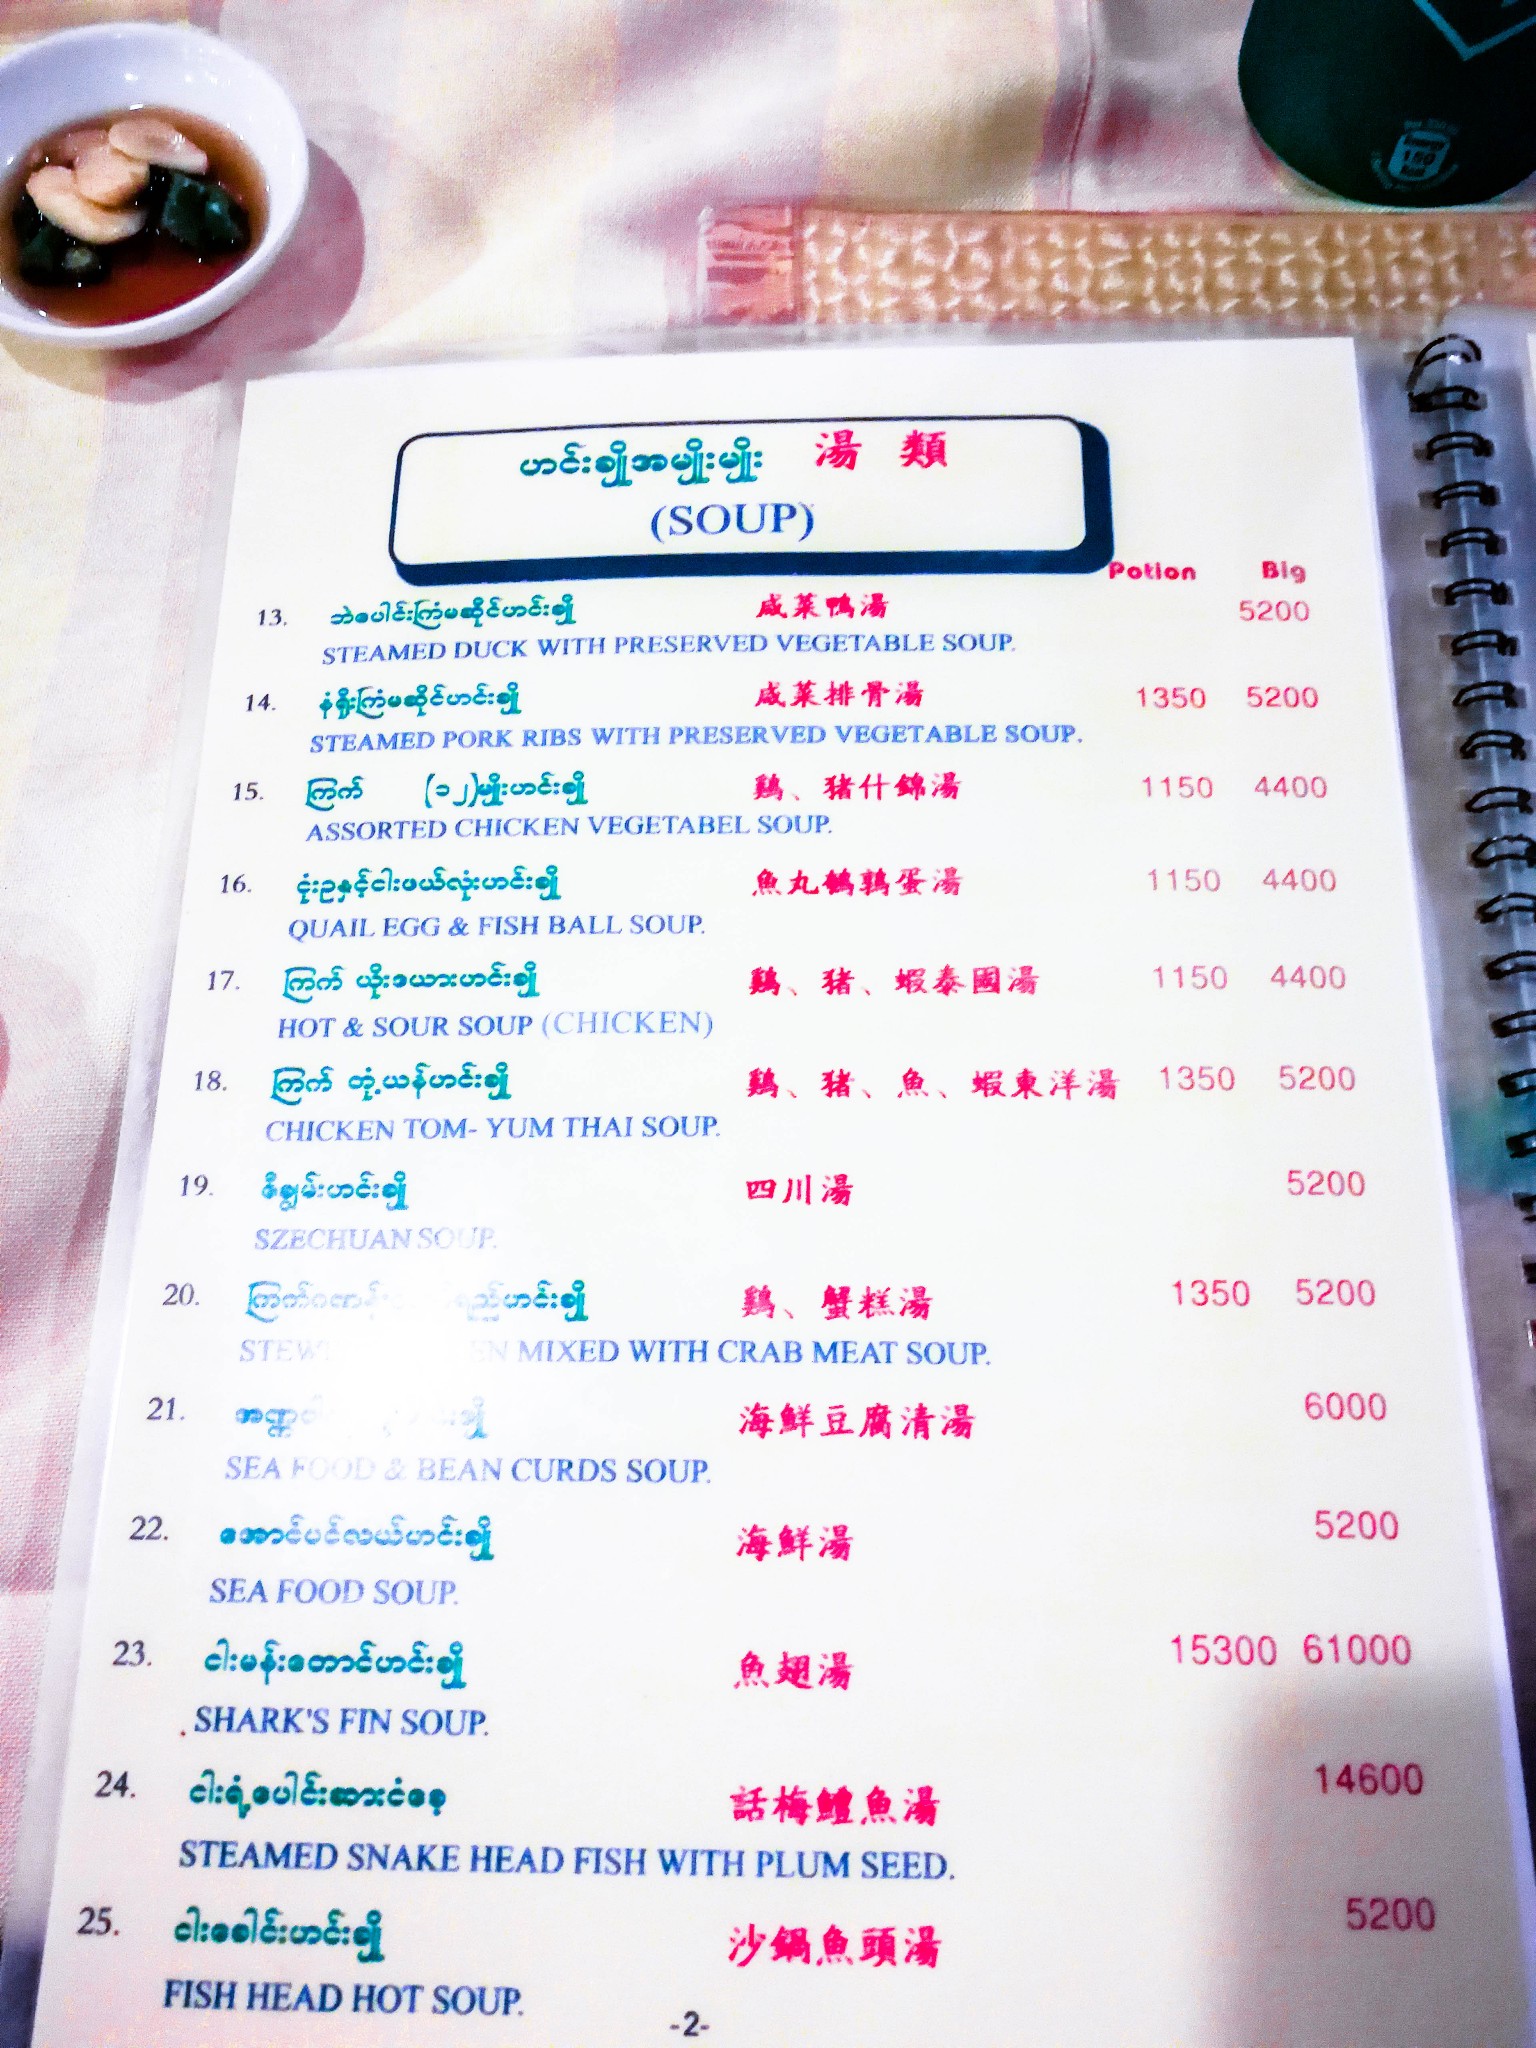 ဟင်းချိုအမျိုးမျိုး 湯 類
(SOUP)
Potion Big
13. ဘဲပေါင်းကြံမဆိုင်ဟင်းချို 咸菜鴨湯 5200
STEAMED DUCK WITH PRESERVED VEGETABLE SOUP.
14. နံရိုးကြံမဆိုင်ဟင်းချို 咸菜排骨湯 1350 5200
STEAMED PORK RIBS WITH PRESERVED VEGETABLE SOUP.
15. ကြက် (၁၂)မျိုးဟင်းချို 鷄、猪什錦湯 1150 4400
ASSORTED CHICKEN VEGETABEL SOUP.
16. ငုံးဥနှင့်ငါးဖယ်လုံးဟင်းချို 魚丸鵪鶉蛋湯 1150 4400
QUAIL EGG & FISH BALL SOUP.
17. ကြက် ယိုးဒယားဟင်းချို 鷄、猪、蝦泰國湯 1150 4400
HOT & SOUR SOUP (CHICKEN)
18. ကြက် တုံ့ယန်ဟင်းချို 鷄、猪、魚、蝦東洋湯 1350 5200
CHICKEN TOM- YUM THAI SOUP.
19. ဇီချွမ်းဟင်းချို 四川湯 5200
SZECHUAN SOUP.
20. 鷄、蟹糕湯 1350 5200
MIXED WITH CRAB MEAT SOUP.
21. 海鮮豆腐清湯 6000
SEA FOOD & BEAN CURDS SOUP.
22. အောင်ပင်လယ်ဟင်းချို 海鮮湯 5200
SEA FOOD SOUP.
23. ငါးမန်းတောင်ဟင်းချို 魚翅湯 15300 61000
SHARK'S FIN SOUP.
24. ငါးရံ့ပေါင်းဆားငံစေ့ 話梅鱧魚湯 14600
STEAMED SNAKE HEAD FISH WITH PLUM SEED.
25. ငါးခေါင်းဟင်းချို 沙鍋魚頭湯 5200
FISH HEAD HOT SOUP.
-2-